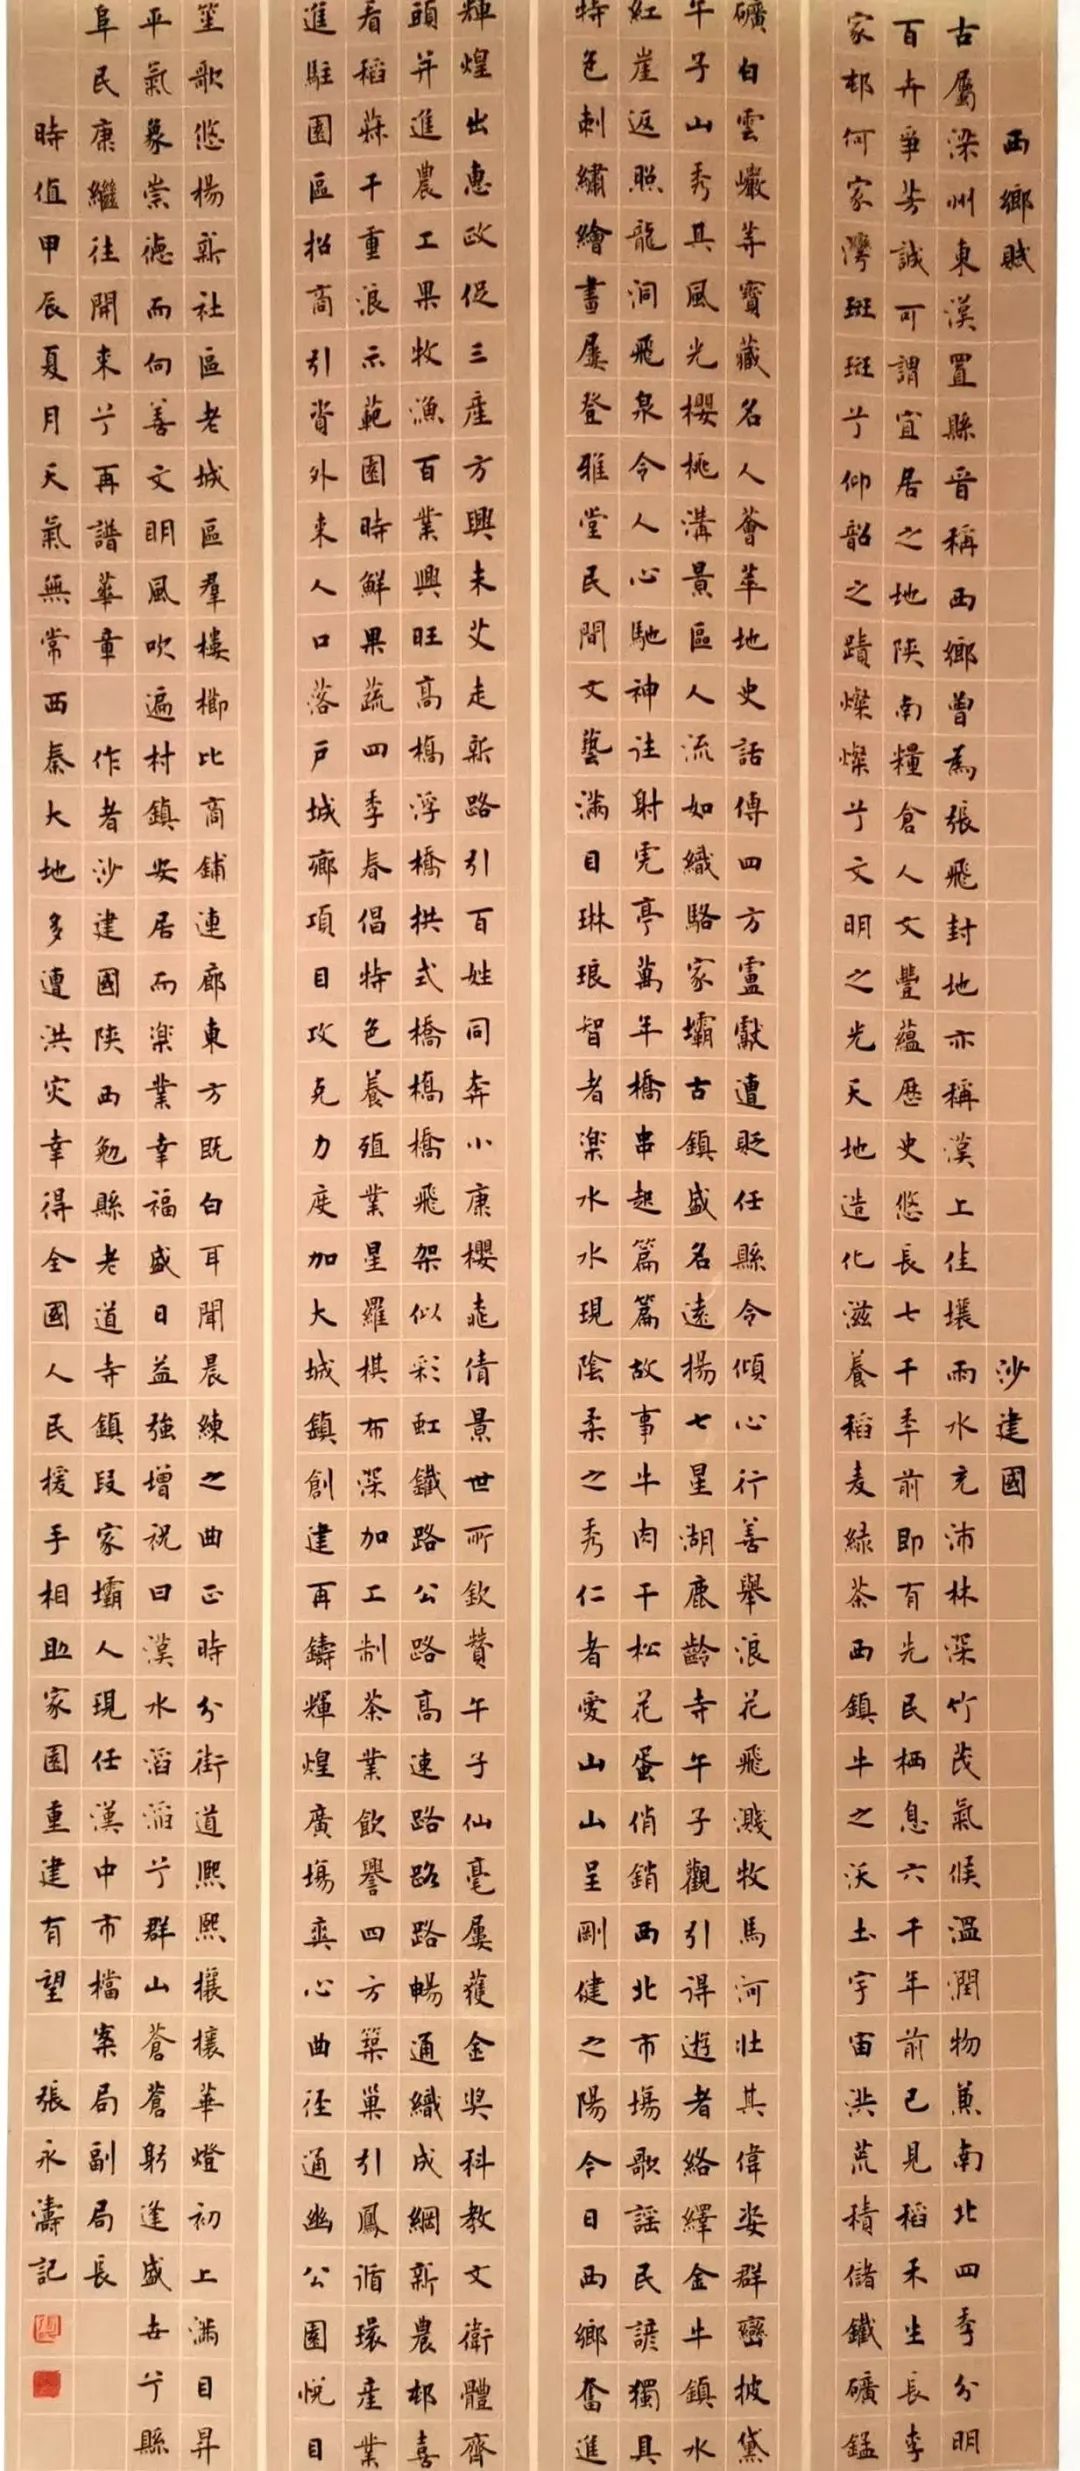 西鄉賦 沙建國
古屬梁州東漢置縣晉稱西鄉曾為張飛封地亦稱漢上佳壤雨水充沛林深竹茂氣候溫潤物兼南北四季分明
百卉爭芳誠可謂宜居之地陝南糧倉人文豐蘊歷史悠長七千年前即有先民栖息六千年前已見稻禾生長李
家邨何家灣斑斑兮仰韶之蹟燦燦兮文明之光天地造化滋養稻麦綠茶西鎮牛之沃土宇宙洪荒積儲鐵礦錳
礦白雲巖等寶藏名人薈萃地史話傳四方盧獻遭貶任縣令傾心行善舉浪花飛濺牧馬河壯其偉姿群巒披黛
午子山秀其風光櫻桃溝景區人流如織駱家壩古鎮盛名遠揚七星湖鹿齡寺午子觀引得遊者絡繹金牛鎮水
紅崖返照龍洞飛泉令人心馳神往射虎亭萬年橋串起篇篇故事牛肉干松花蛋俏銷西北市場歌謡民諺獨具
特色刺繡繪畫屢登雅堂民間文藝滿目琳琅智者楽水水現陰柔之秀仁者愛山山呈剛健之陽今日西鄉奮進
輝煌出惠政促三産方興未艾走新路引百姓同奔小康櫻桃倩景世所欽贊午子仙毫屢獲金奖科教文衛體齊
頭并進農工果牧漁百業興旺高橋浮橋拱式橋橋橋飛架似彩虹鐵路公路高速路路路暢通織成網新農邨喜
看稻蔴千重浪示範園時鮮果蔬四季春倡特色養殖業星羅棋布深加工制茶業飲譽四方築巢引鳳循環産業
進駐園區招商引資外來人口落戶城鄉項目攻克力度加大城鎮創建再鑄輝煌廣場爽心曲徑通幽公園悅目
笙歌悠揚新社區老城區羣樓櫛比商鋪連廊東方既白耳聞晨練之曲正時分街道熙熙攘攘華燈初上滿目昇
平氣象崇德而向善文明風吹遍村鎮安居而楽業幸福盛日益強增祝曰漢水滔滔兮群山蒼蒼躬逢盛世兮縣
阜民康繼往開来兮再譜華章 作者沙建國陝西勉縣老道寺鎮段家壩人現任漢中市檔案局副局長
時值甲辰夏月天氣無常西秦大地多遭洪災幸得全國人民援手相助家園重建有望 張永濤記